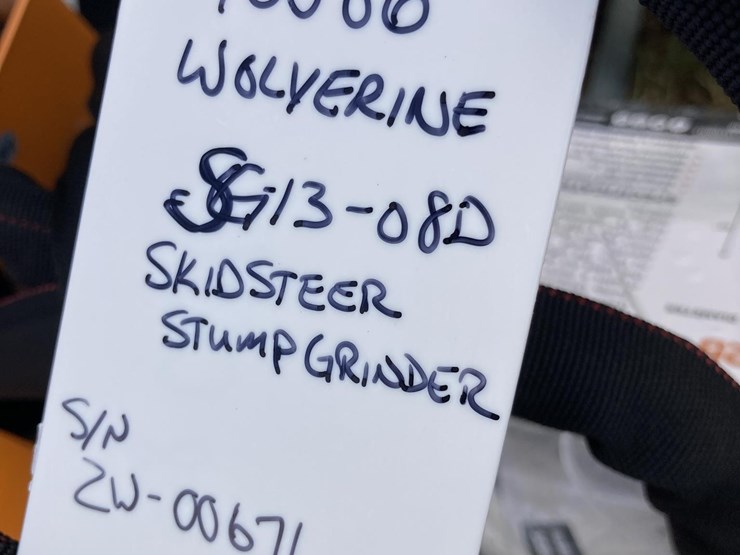 WOLVERINE
SG13-08D
SKIDSTEER
STUMP GRINDER
S/N
ZW-00671